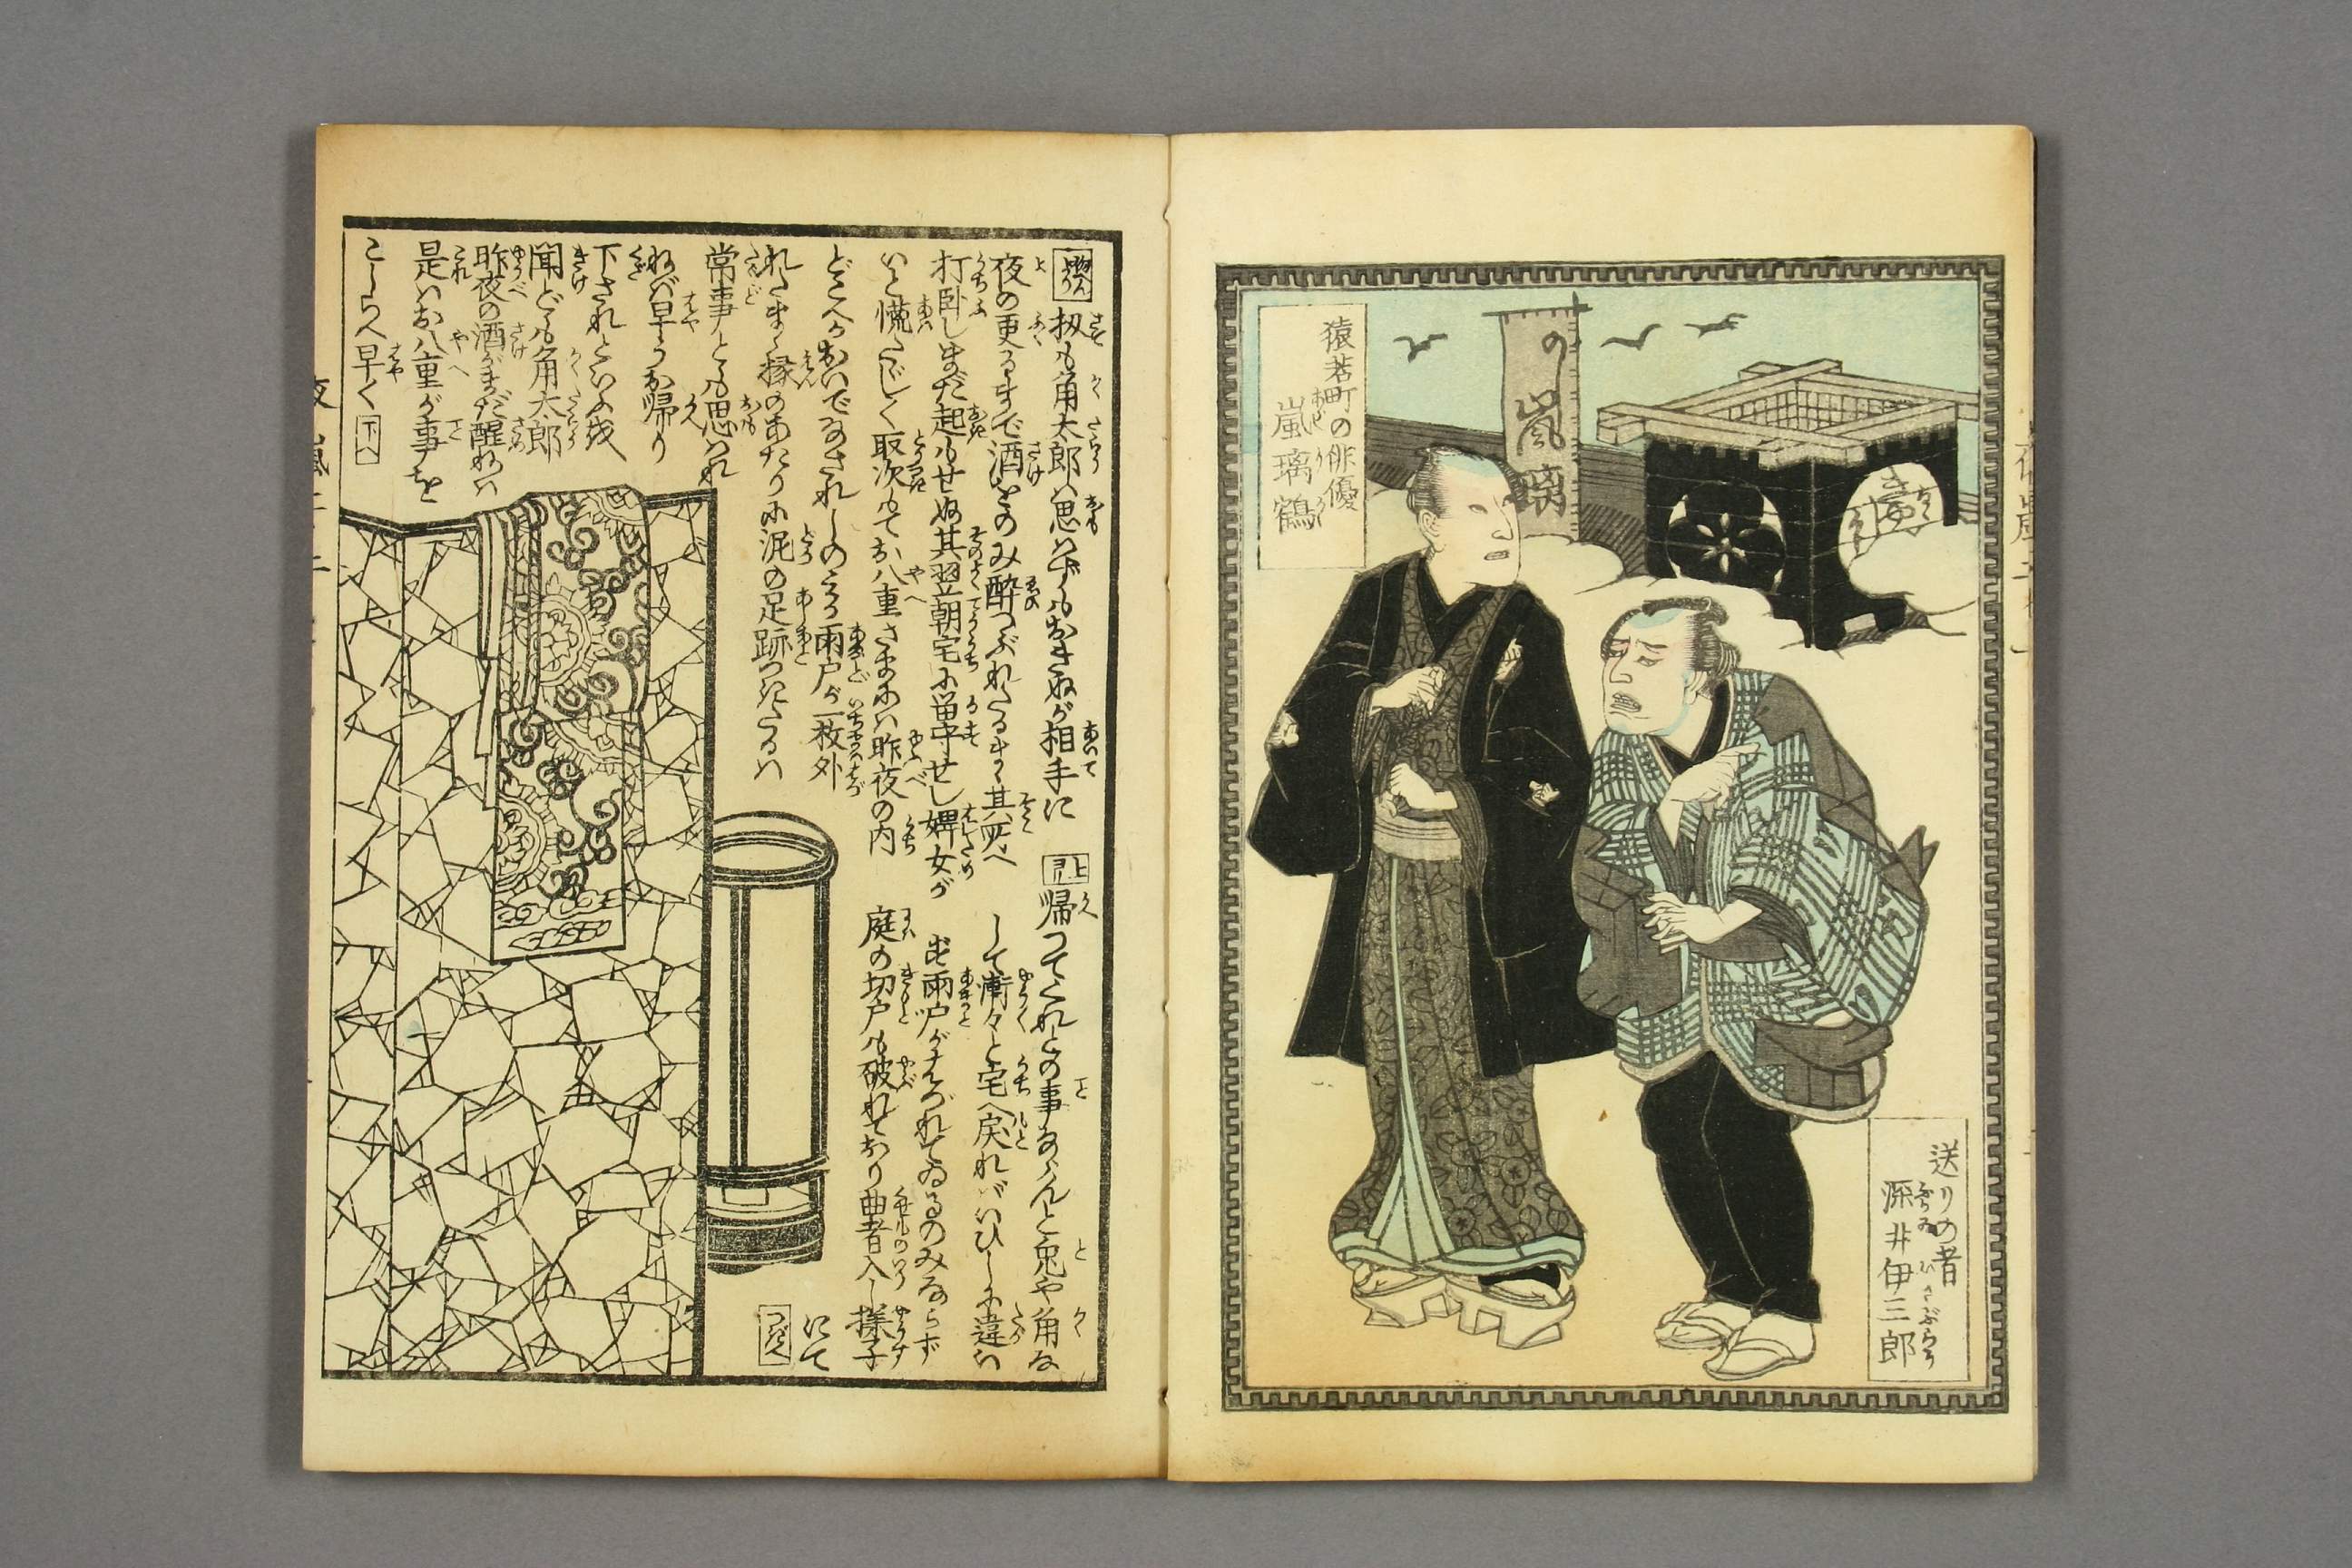 猿若町の俳優
嵐璃鶴
あらし りかく
の嵐璃
送りの者
深井伊三郎
ふかゐ いさぶらう
扨も角太郎は思はずもおきぬが相手に
夜の更るまで酒をのみ酔つぶれたるまゝ其処へ
打臥しまだ起もせぬ其翌朝宅に留守せし婢女が
いと慌たゞしく取次もてお八重さまには昨夜の内
どこへかおいでなされしのみか雨戸が一枚外
れたまゝ縁のあたりに泥の足跡つきたるは
常事とも思はれ
ねバ早うお帰り
下されといふを
聞ども角太郎
昨夜の酒がまだ醒ねば
是はお八重が事を
こしらへ早く
下へ
上ゟ
帰つてくれとの事ならんと兎や角な
して漸々と宅へ戻ればいひしに違は
ず雨戸がはづれてゐるのみならず
庭の切戸も破れており曲者入し様子
にて
つぎへ